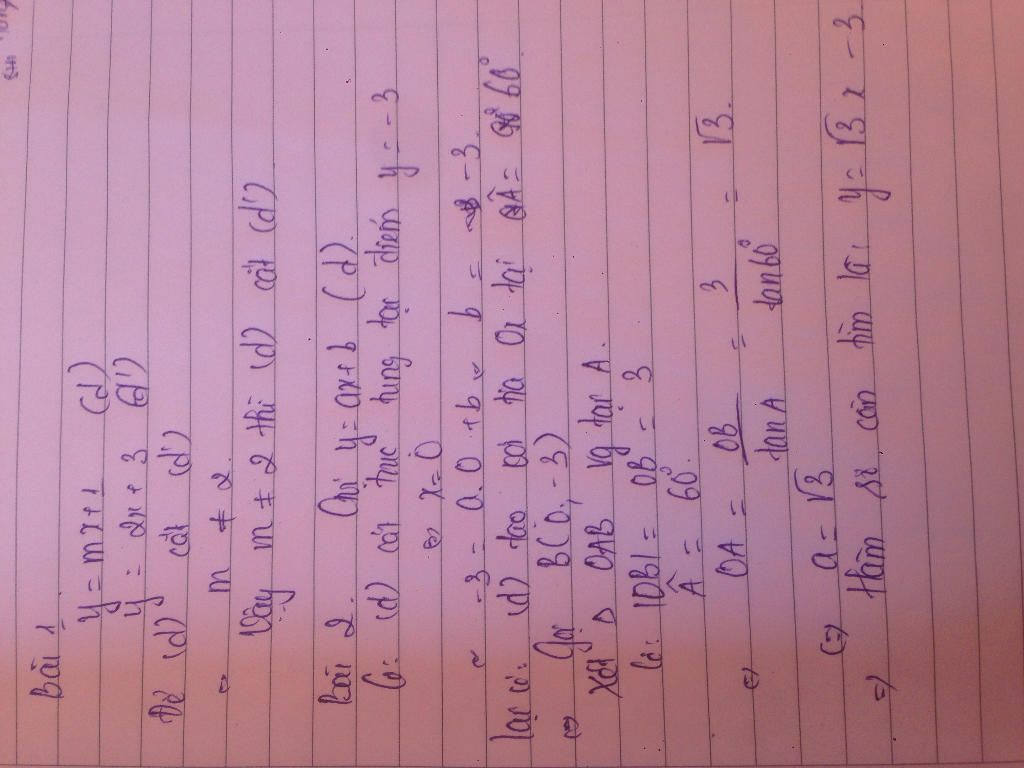 Bài 1
y = mx+1 (d)
y = 2x+3 (d')
Để (d) cắt (d')
⇔ m ≠ 2
Vậy m ≠ 2 thì (d) cắt (d')
Bài 2. y = ax+b (d).
Có: (d) cắt trục tung tại điểm y = -3
⇔ x = 0
-3 = a.0 + b b = -3.
Lại có: (d) tạo Ox tại Â = 60°
⇔ Gọi B(0; -3)
Xét Δ OAB vg tại A.
Có: |OB| = OB = 3
Â = 60°
⇔ OA = OB / tan A = 3 / tan 60° = √3.
⇔ a = √3
⇒ Hàm số cần tìm là: y = √3 x - 3